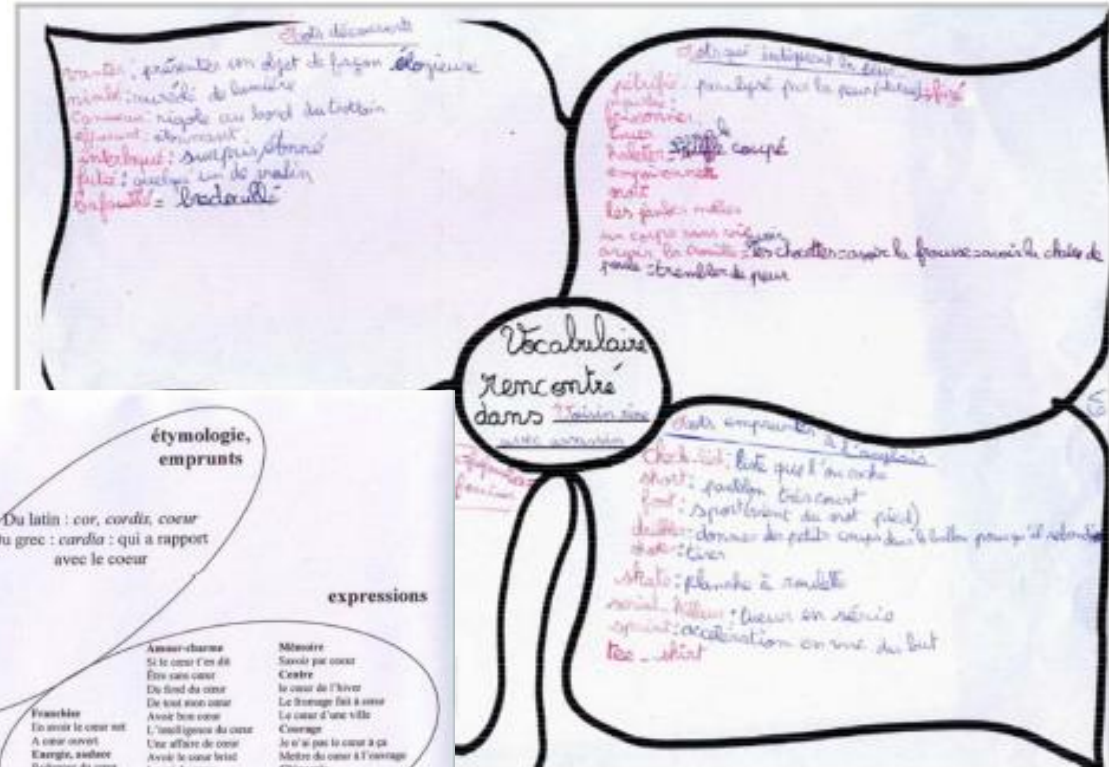 Mots découverts
vanter : présenter un objet de façon élogieuse
nimbé : auréolé de lumière
caniveau : rigole au bord du trottoir
effarant : étonnant
interloqué : surpris, étonné
futé : quelqu'un de malin
Bafouillé = bredouillé
Mots qui indiquent la peur
pétrifié : paralysé par la peur figé
frissonner
tuer
haleter : souffle coupé
empoisonner
mort
les jambes molles
un corps sans vie
avoir la trouille = les chocottes = avoir la frousse = avoir la chair de
poule = trembler de peur
Vocabulaire
rencontré
dans Voisin rime
avec assassin
Mots empruntés à l'anglais
Check-list : liste que l'on coche
short : pantalon très court
foot : sport (vient du mot pied)
dribbler : donner des petits coups dans le ballon pour qu'il rebondisse
shooter : tirer
skate : planche à roulette
serial-killeur : tueur en série
sprint : accélération en vue du but
tee-shirt
étymologie,
emprunts
Du latin : cor, cordis, coeur
Du grec : cardia : qui a rapport
avec le coeur
expressions
Amour-charme
Si le coeur t'en dit
Être sans coeur
Du fond du coeur
De tout mon coeur
Avoir bon coeur
L'intelligence du coeur
Une affaire de coeur
Avoir le coeur brisé
Mémoire
Savoir par coeur
Centre
le coeur de l'hiver
Le fromage fait à coeur
Le coeur d'une ville
Courage
Je n'ai pas le coeur à ça
Mettre du coeur à l'ouvrage
Franchise
En avoir le coeur net
A coeur ouvert
Energie, audace